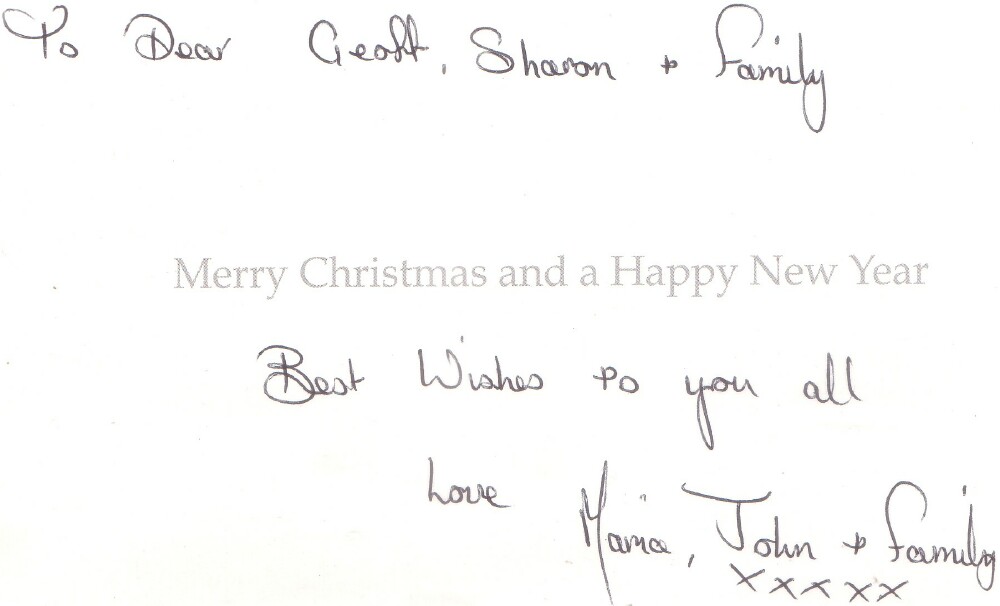 To Dear Geoff, Sharon + Family
Merry Christmas and a Happy New Year
Best Wishes to you all
Love Maria, John + Family
xxxxx